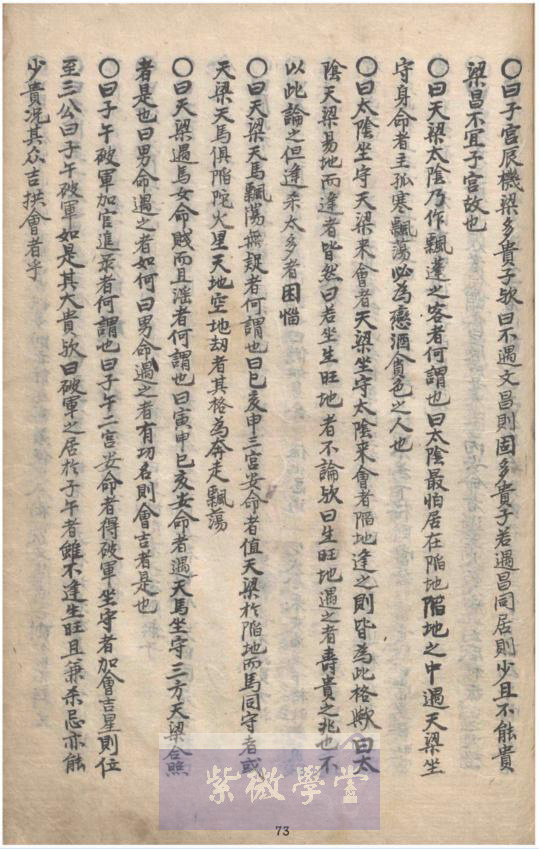 〇曰子宮辰機梁多貴子欤曰不遇文昌則固多貴子若遇昌同居則少且不能貴
梁昌不宜子宮故也
〇曰天梁太陰乃作飄蓬之客者何謂也曰太陰最怕居在陷地陷地之中遇天梁坐
守身命者主孤寒飄蕩必為戀酒貪色之人也
〇曰太陰坐守天梁来會者天梁坐守太陰来會者陷地逢之則皆為此格歟曰太
陰天梁易地而逢者皆然曰若坐生旺地者不論欤曰生旺地遇之者壽貴之兆也不
以此論之但逢杀太多者困惱
〇曰天梁天馬飄蕩無疑者何謂也曰巳亥申三宮安命者值天梁於陷地而馬同守者或
天梁天馬俱陷陀火星天地空地刼者其格為奔走飄蕩
〇曰天梁遇馬女命賤而且滛者何謂也曰寅申巳亥安命者遇天馬坐守三方天梁合照
者是也曰男命遇之者如何曰男命遇之者有功名則會吉者是也
〇曰子午破軍加官進录者何謂也曰子午二宮安命者得破軍坐守者加會吉星則位
至三公曰子午破軍如是其大貴欤曰破軍之居於子午者雖不逢生旺且兼杀忌亦能
少貴况其众吉拱會者乎
紫微學堂
73